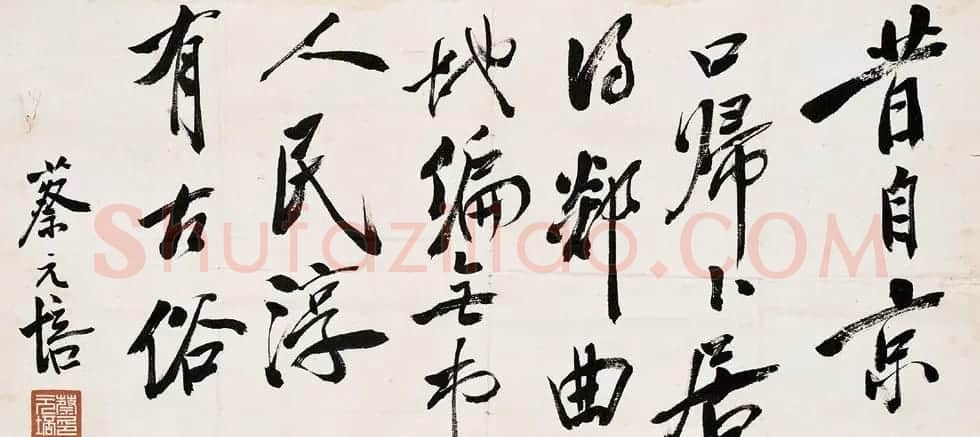 昔自京
口歸卜居
得鄰曲
地偏無市
人民淳
有古俗
蔡元培
Shufaziliao.COM